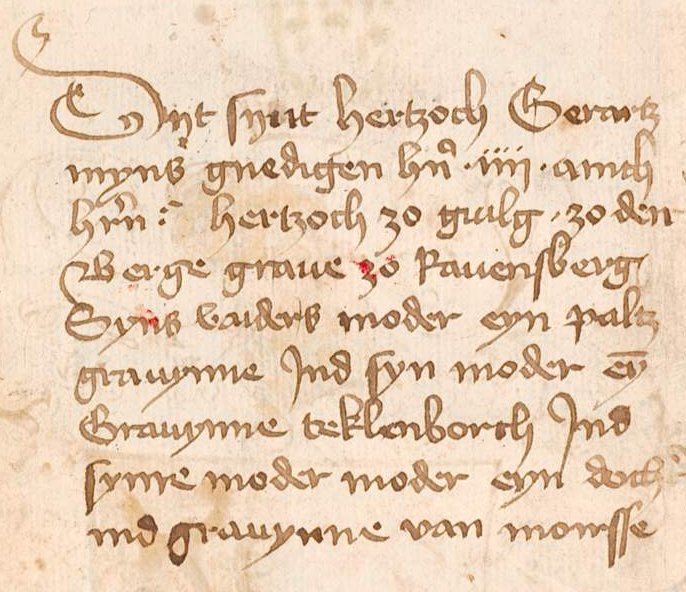 Dyt synt hertzoch Gerartz
myns gnedigen hn̄ · iiii · anich
hrn̄ : hertzoch zo guilg · zo den
Berge graue zo Rauensberg
Syns vaiders moder eyn paltz
grauynne Ind syn moder ey̅
Grauynne teklenborch Ind
synre moder moder eyn docht
ind grauynne van moursse